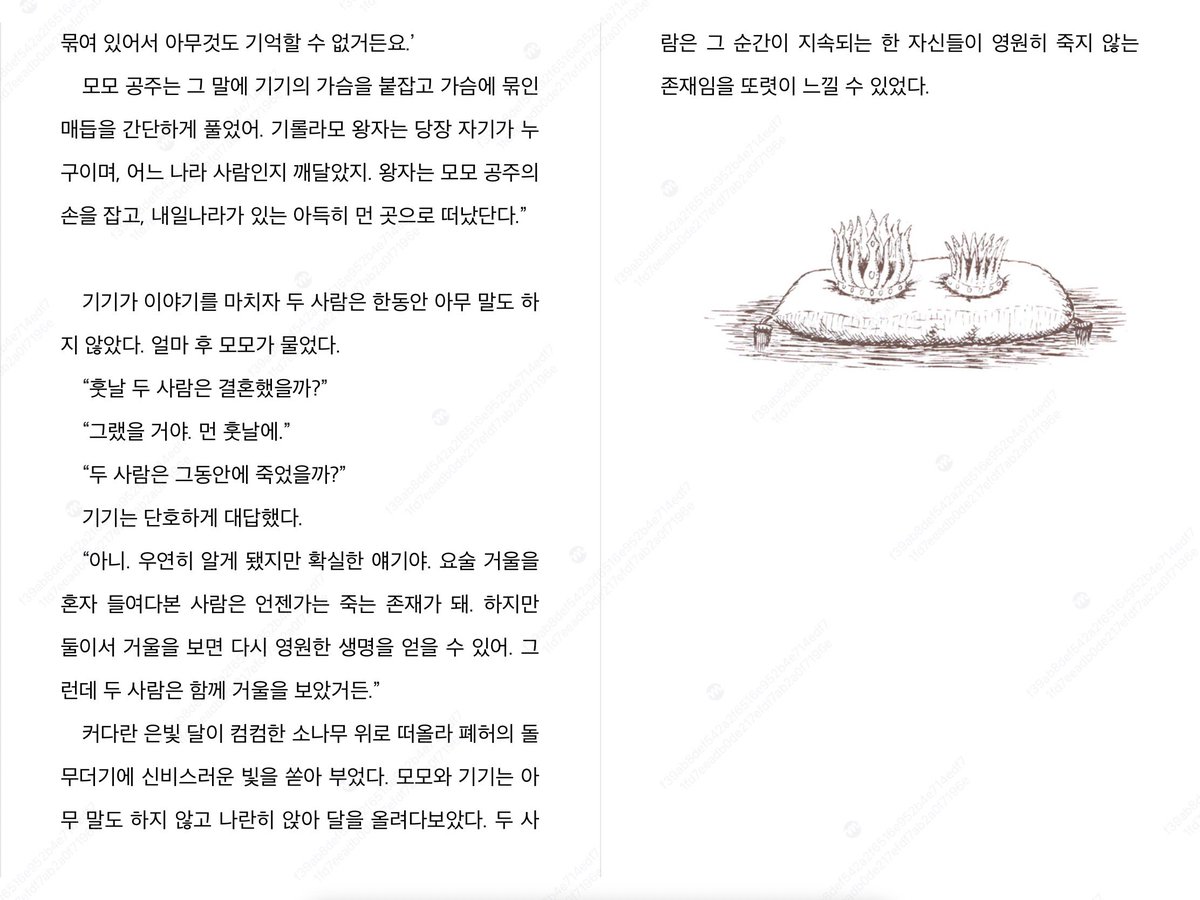 묶여 있어서 아무것도 기억할 수 없거든요.’
모모 공주는 그 말에 기기의 가슴을 붙잡고 가슴에 묶인
매듭을 간단하게 풀었어. 기롤라모 왕자는 당장 자기가 누
구이며, 어느 나라 사람인지 깨달았지. 왕자는 모모 공주의
손을 잡고, 내일나라가 있는 아득히 먼 곳으로 떠났단다.”
기기가 이야기를 마치자 두 사람은 한동안 아무 말도 하
지 않았다. 얼마 후 모모가 물었다.
“훗날 두 사람은 결혼했을까?”
“그랬을 거야. 먼 훗날에.”
“두 사람은 그동안에 죽었을까?”
기기는 단호하게 대답했다.
“아니. 우연히 알게 됐지만 확실한 얘기야. 요술 거울을
혼자 들여다본 사람은 언젠가는 죽는 존재가 돼. 하지만
둘이서 거울을 보면 다시 영원한 생명을 얻을 수 있어. 그
런데 두 사람은 함께 거울을 보았거든.”
커다란 은빛 달이 컴컴한 소나무 위로 떠올라 폐허의 돌
무더기에 신비스러운 빛을 쏟아 부었다. 모모와 기기는 아
무 말도 하지 않고 나란히 앉아 달을 올려다보았다. 두 사
람은 그 순간이 지속되는 한 자신들이 영원히 죽지 않는
존재임을 또렷이 느낄 수 있었다.